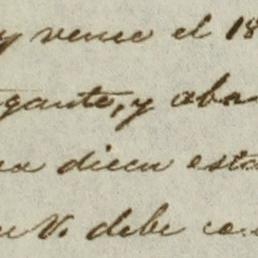 y vence el 18
gante, y aba
a dicen esta
V. debe co